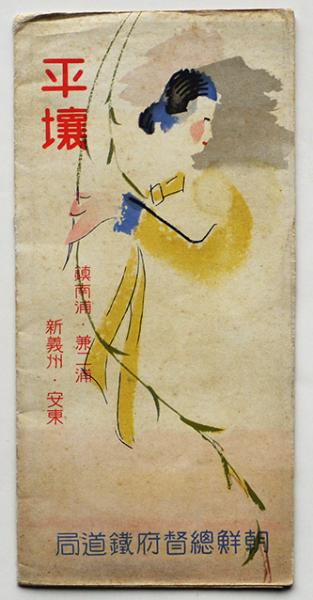 平壤
鎭南浦・兼二浦
新義州・安東
局道鐵府督總鮮朝